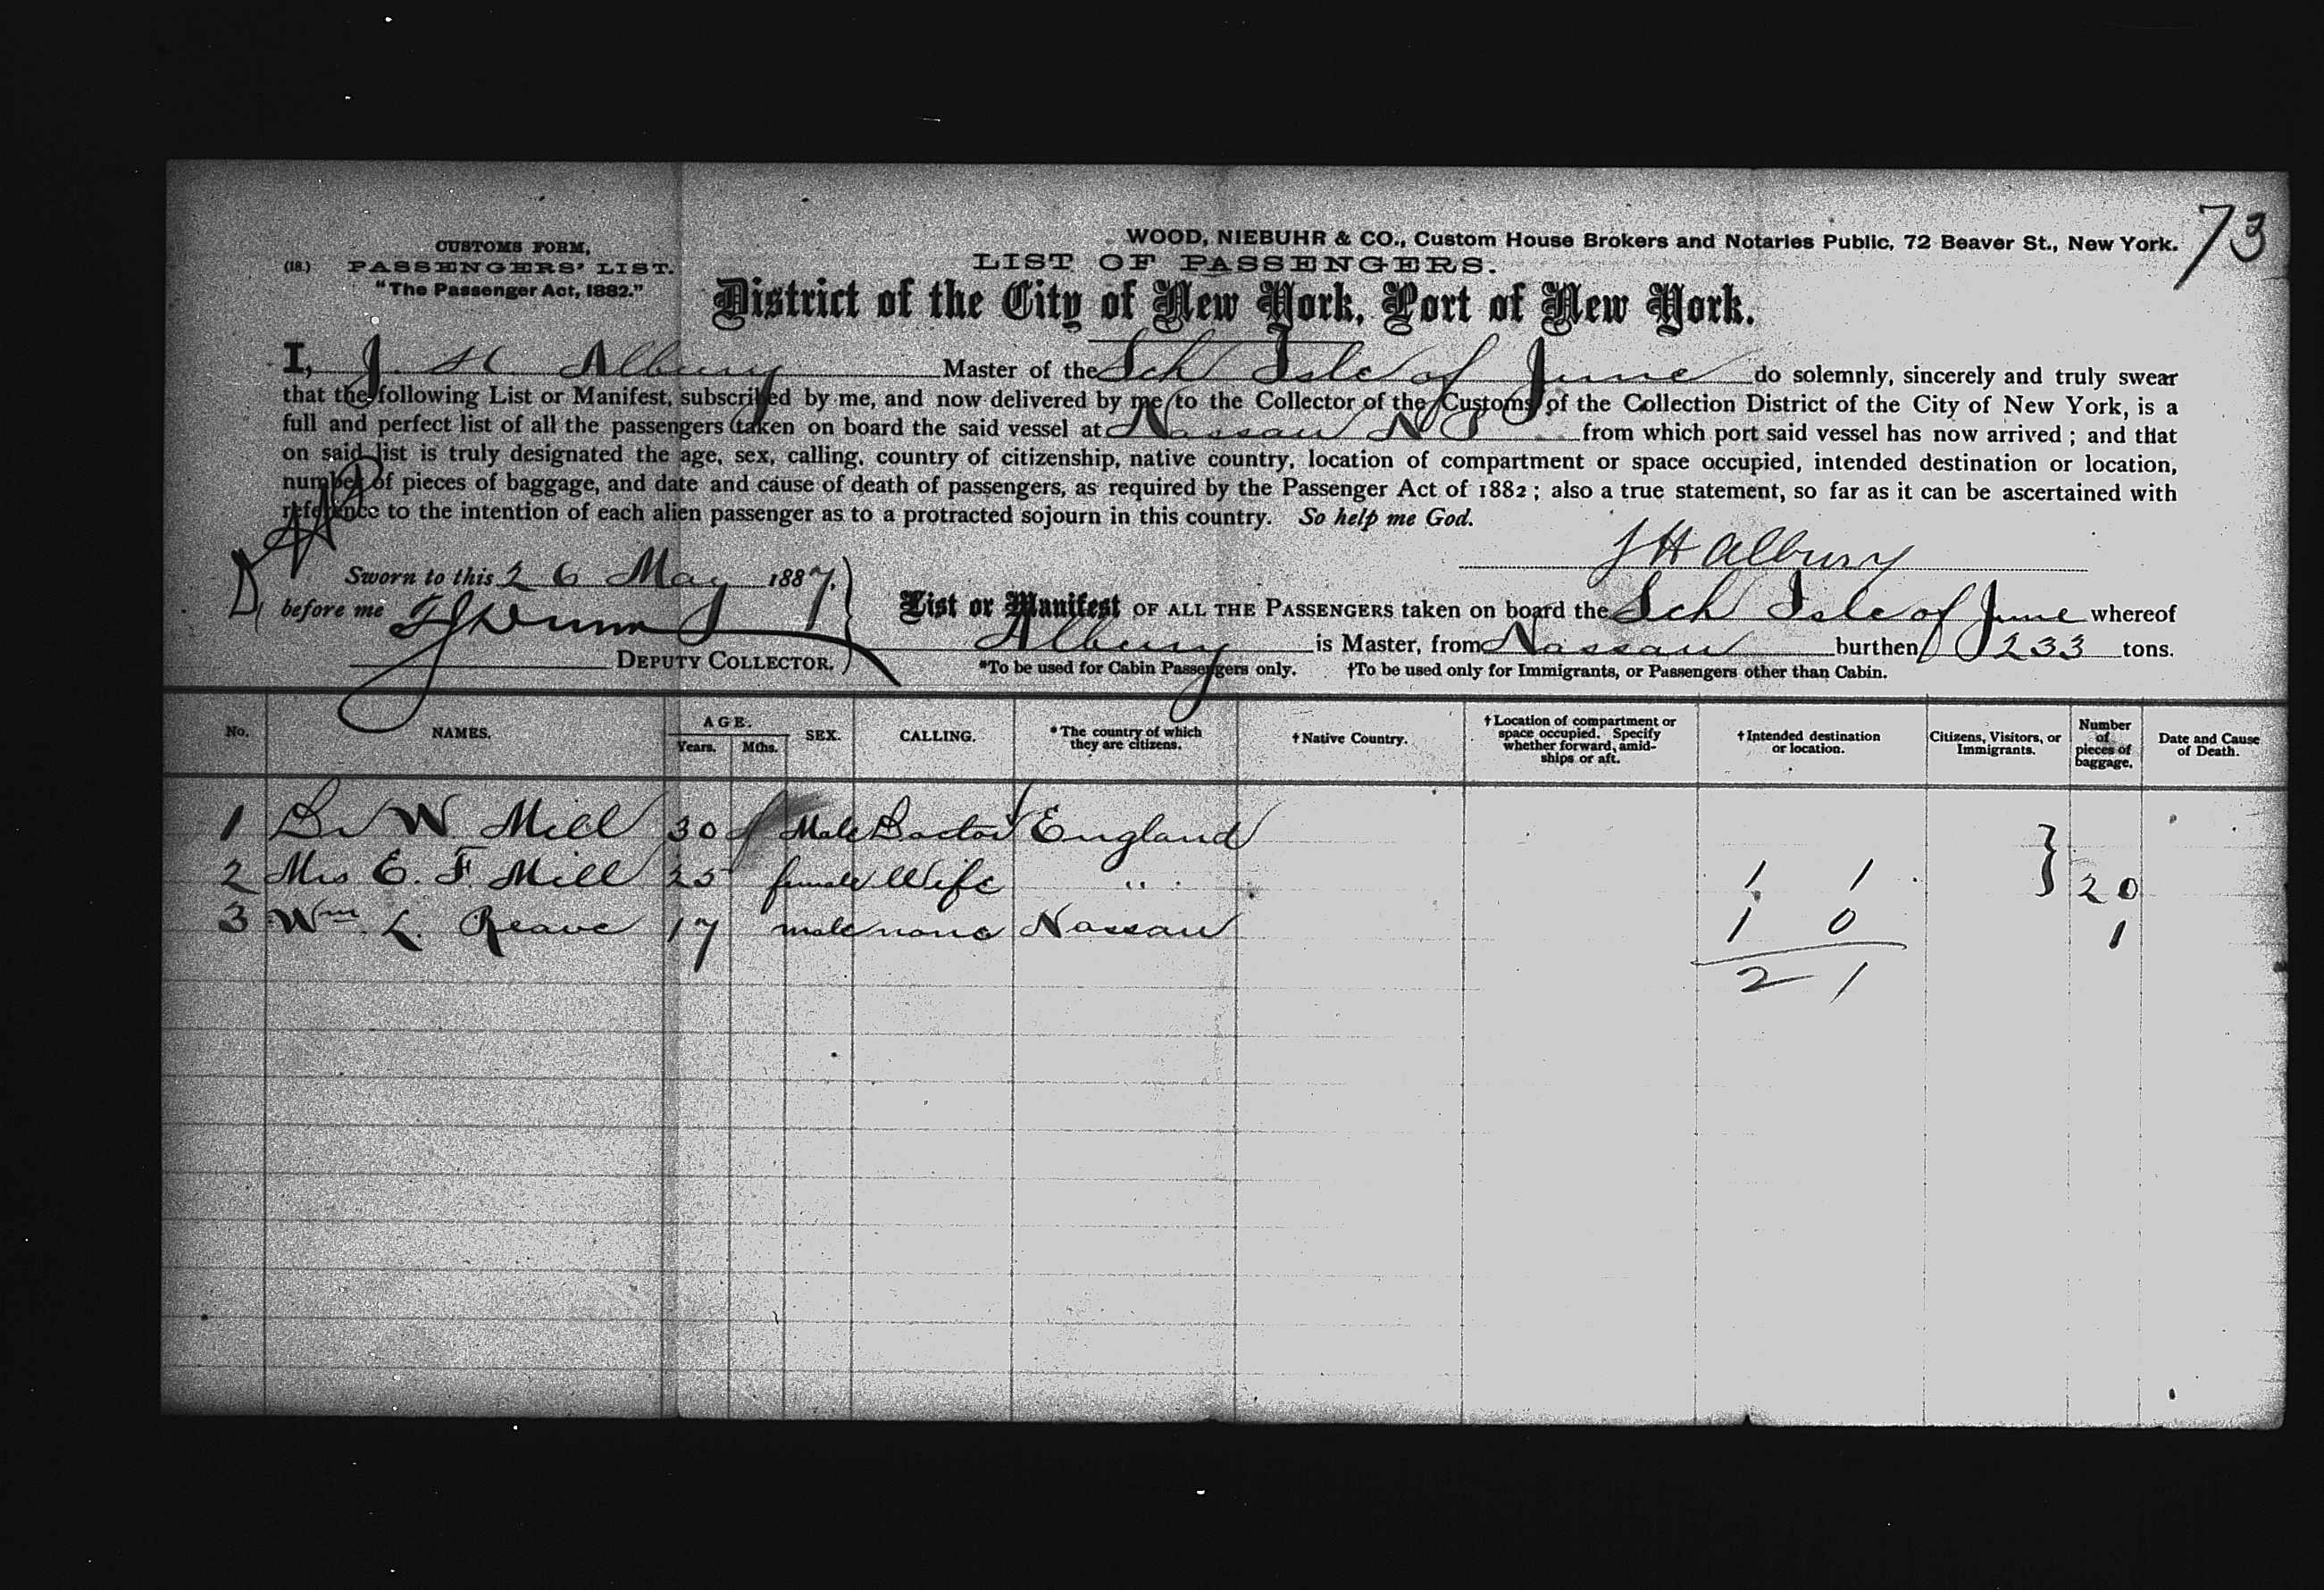 73
WOOD, NIEBUHR & CO., Custom House Brokers and Notaries Public, 72 Beaver St., New York.
CUSTOMS FORM,
(18.) PASSENGERS' LIST.
"The Passenger Act, 1882."
LIST OF PASSENGERS.
District of the City of New York, Port of New York.
I, J H Albury Master of the Sch Isle of June do solemnly, sincerely and truly swear
that the following List or Manifest, subscribed by me, and now delivered by me to the Collector of the Customs of the Collection District of the City of New York, is a
full and perfect list of all the passengers taken on board the said vessel at Nassau N P from which port said vessel has now arrived; and that
on said list is truly designated the age, sex, calling, country of citizenship, native country, location of compartment or space occupied, intended destination or location,
number of pieces of baggage, and date and cause of death of passengers, as required by the Passenger Act of 1882; also a true statement, so far as it can be ascertained with
reference to the intention of each alien passenger as to a protracted sojourn in this country. So help me God.
J H Albury
Sworn to this 26 May 1887.
before me
DEPUTY COLLECTOR.
List or Manifest OF ALL THE PASSENGERS taken on board the Sch Isle of June whereof
Albury is Master, from Nassau burthen 233 tons.
*To be used for Cabin Passengers only. †To be used only for Immigrants, or Passengers other than Cabin.
No. NAMES. AGE. Years. Mths. SEX. CALLING. *The country of which they are citizens. †Native Country. †Location of compartment or space occupied. Specify whether forward, amidships or aft. †Intended destination or location. Citizens, Visitors, or Immigrants. Number of pieces of baggage. Date and Cause of Death.
1 Dr W. Mill 30 Male Doctor England
2 Mrs E. F. Mill 25 female Wife " 1 1 } 20
3 Wm. L. 17 male none Nassau 1 0 1
2 1